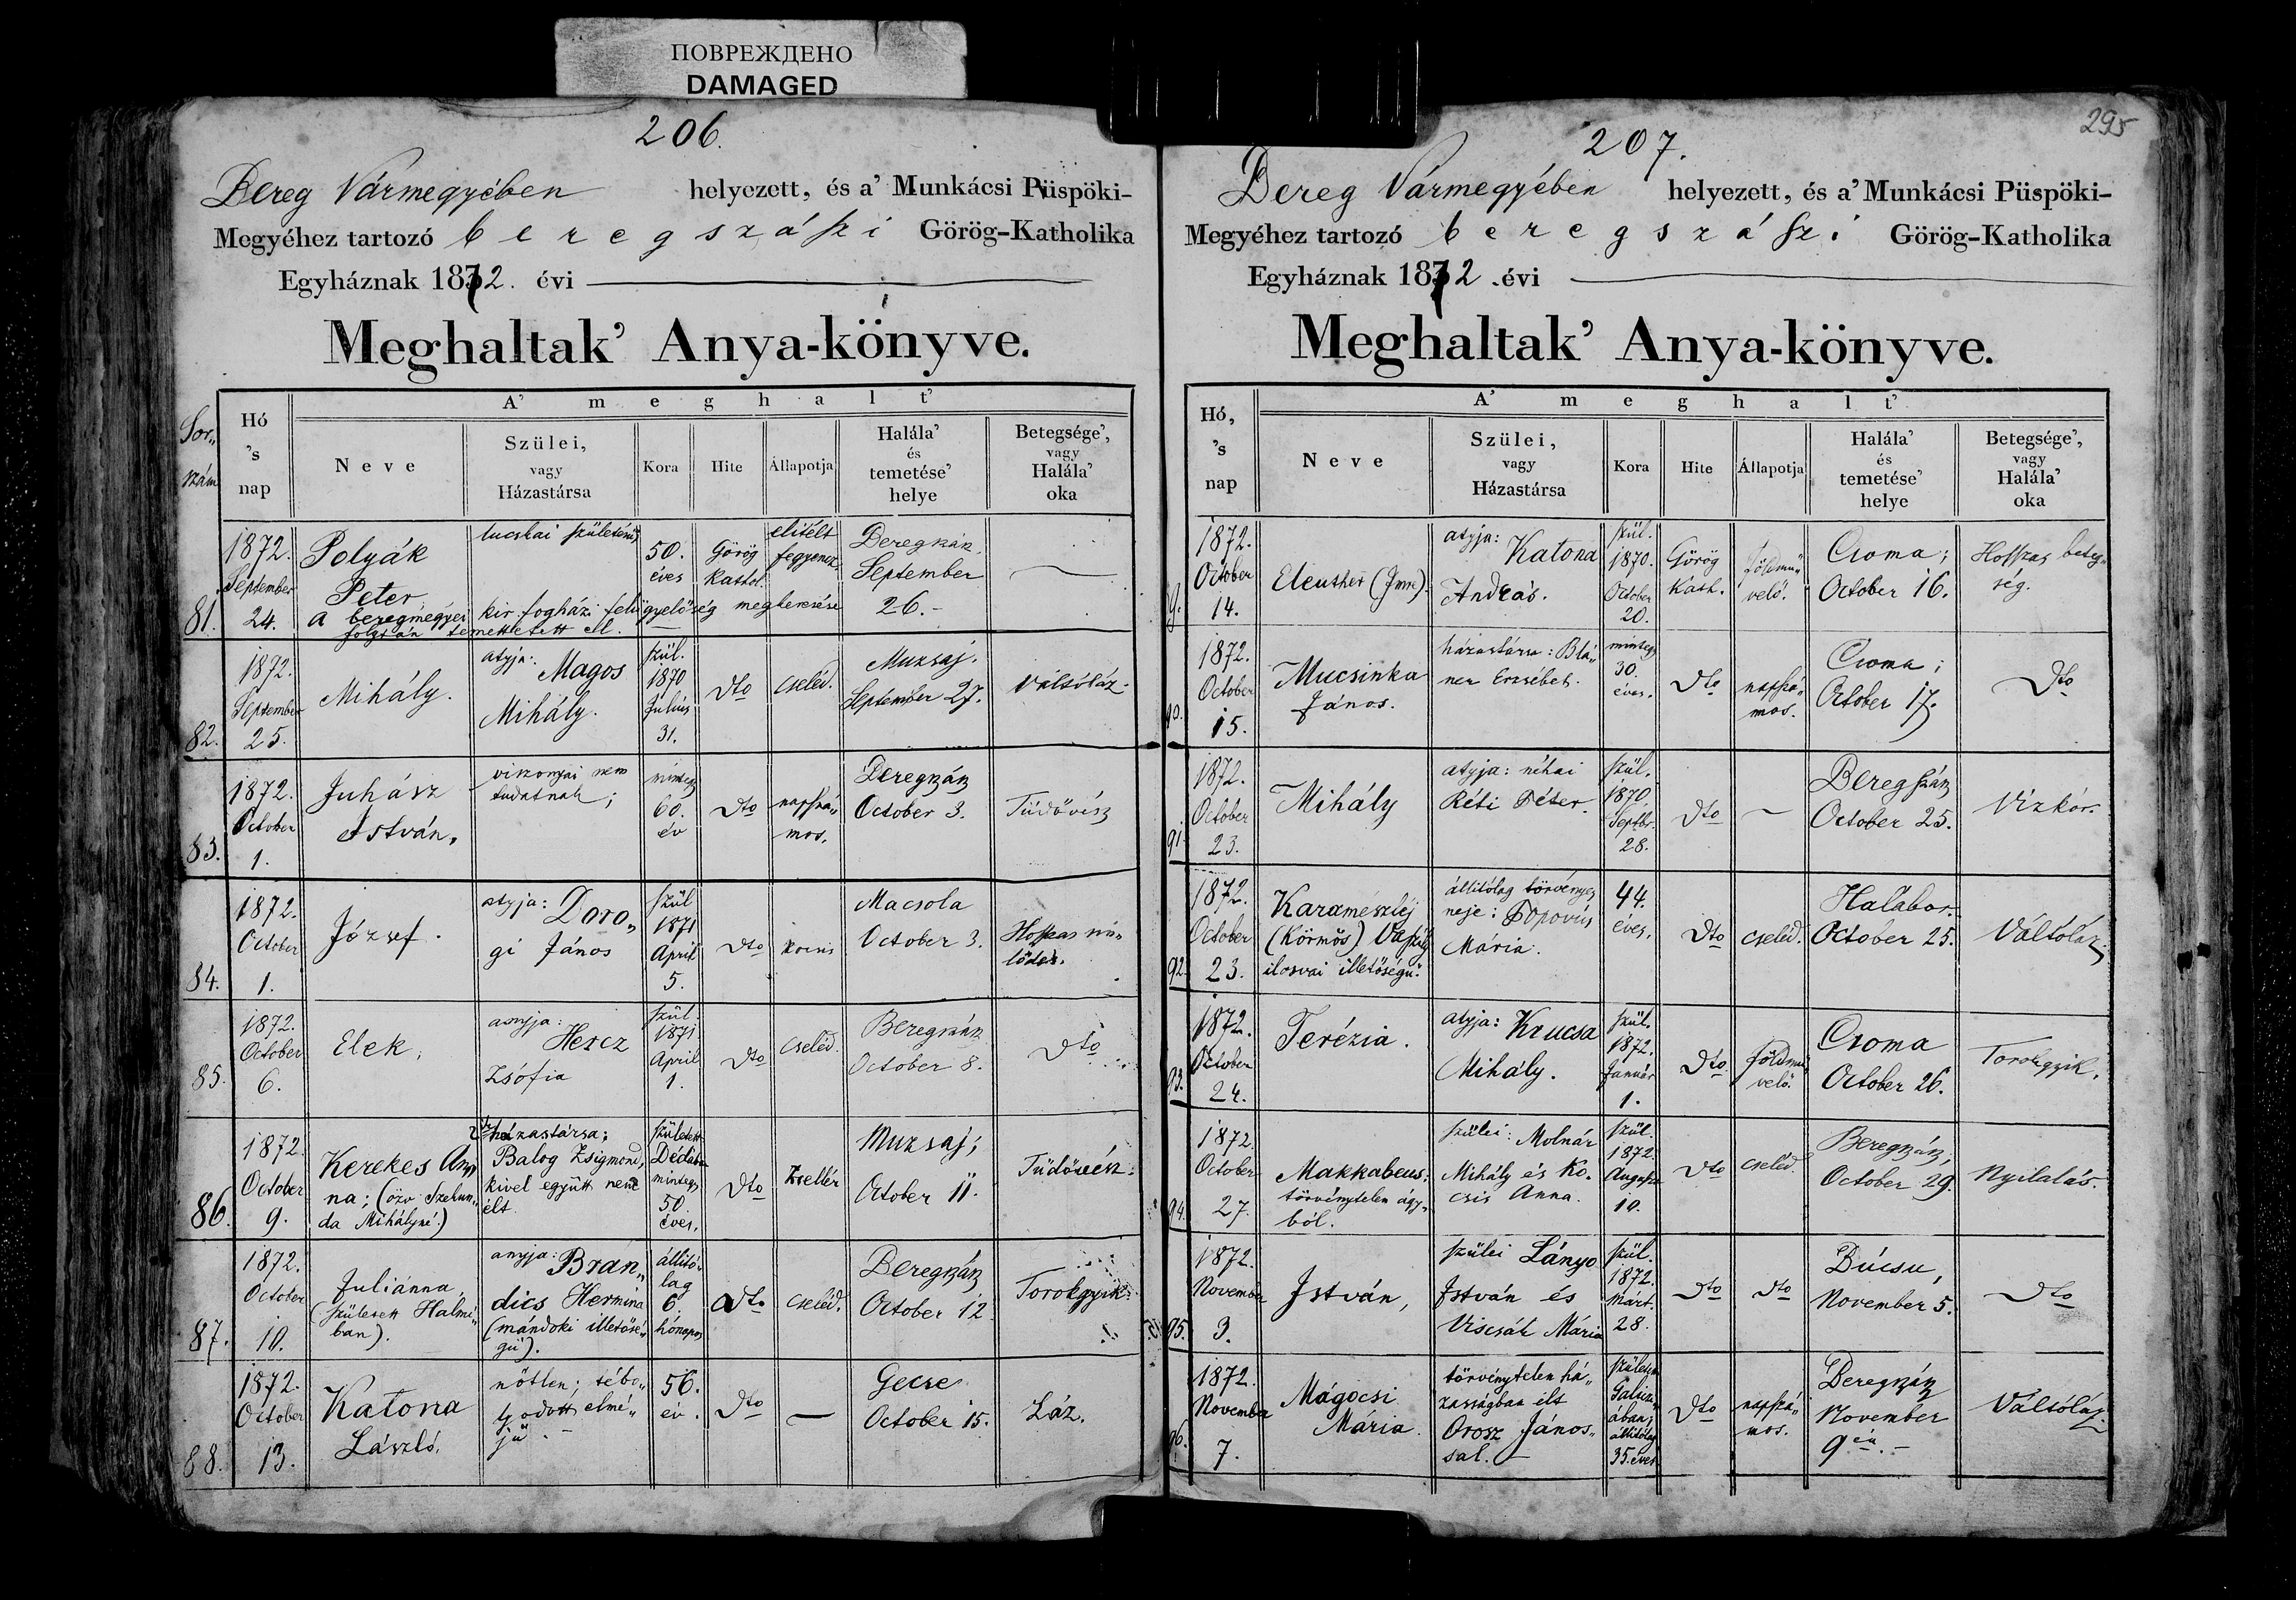 ПОВРЕЖДЕНО
DAMAGED
206.
Bereg Vármegyében helyezett, és a' Munkácsi Püspöki-
Megyéhez tartozó beregszászi Görög-Katholika
Egyháznak 1872. évi
Meghaltak' Anya-könyve.
Sor-
szám
Hó
's
nap
A' meghalt'
Neve
Szülei,
vagy
Házastársa
Kora
Hite
Állapotja
Halála'
és
temetése'
helye
Betegsége',
vagy
Halála'
oka
81.
1872.
September
24.
Polyák
Peter
lucskai születésü
50.
éves
Görög
Kathol.
elitélt
fegyencz
Beregszász
September
26.-
a beregmegyei kir fogházi felügyelőség megkeresése
folytán temettetett el.
82.
1872.
September
25.
Mihály.
atyja: Magos
Mihály.
szül.
1870
Julius
31.
dto
cseléd.
Muzsaj.
September 27.
Váltóláz
83.
1872.
October
1.
Juhász
István.
viszonyai nem
tudatnak;
mintegy
60.
év
dto
napszá„
mos.
Beregszász
October 3.
Tüdővész
84.
1872.
October
1.
József.
atyja: Doro„
gi János
szül
1871
April
5.
dto
Macsola
October 3.
Hosszas
85.
1872.
October
6.
Elek,
anyja:
Hercz
Zsófia
szül.
1871
April
1.
dto
cseléd.
Beregszász
October 8.
dto
86.
1872
October
9.
Kerekes An„
na; (özv Szekun„
da Mihályné.)
házastársa;
Balog Zsigmond,
kivel együtt nem
élt
született
mintegy
50.
éves.
dto
Zsellér
Muzsaj;
October 11.
Tüdővész
87.
1872.
October
10.
Juliánna,
(született Halmi„
ban).
anyja: Bran„
dics Hermina
(mándoki illetősé„
gü).
állitó„
lag
6.
hónapos
dto
cseléd.
Beregszász
October 12
Torokgyik
88.
1872.
October
13.
Katona
László.
nőtlen; tébo„
lyodott elmé„
jü.-
56.
év.
dto
—
Gecse
October 15.
Láz.
295
207.
Bereg Vármegyében helyezett, és a' Munkácsi Püspöki-
Megyéhez tartozó beregszászi Görög-Katholika
Egyháznak 1872 évi
Meghaltak' Anya-könyve.
Hó,
's
nap
A' meghalt'
Neve
Szülei,
vagy
Házastársa
Kora
Hite
Állapotja
Halála'
és
temetése'
helye
Betegsége',
vagy
Halála'
oka
9.
1872.
October
14.
Eleuther (Imre).
atyja: Katona
András.
szül.
1870.
October
20.
Görög
Kath.
földmü„
velő.
Csoma;
October 16.
Hosszas beteg„
ség.
90.
1872.
October
15.
Mucsinka
János.
házastársa: Blá„
ner Erzsébet.
mintegy
30.
éves.
dto
napszá„
mos.
Csoma;
October 17.
dto
91
1872.
October
23.
Mihály
atyja: néhai
Réti Péter.
szül.
1870.
Septbr.
28.
dto
—
Beregszász
October 25.
Vizkór.
92
1872.
October
23.
Karamészléj
(Körmös) Vaszily
ilosvai illetőségü.
állitólag törvényes
neje: Popovics
Mária.
44.
éves.
dto
cseléd.
Halábor.
October 25.
Váltóláz
93.
1872.
October
24.
Terézia.
atyja: Krucsa
Mihály.
szül.
1872.
Január
1.
dto
földmü
velő.
Csoma
October 26.
Torokgyik.
94.
1872
October
27.
Makkabeus:
törvénytelen ágy„
ból.
szülei: Molnár
Mihály és Ko„
csis Anna.
szül.
1872.
August
10.
dto
cseléd.
Beregszász;
October 29.
Nyilalás.
95.
1872.
November
3.
István,
szülei Lányo
István és
Viscsák Mária
szül.
1872.
Márt.
28.
dto
dto
Búcsu,
November 5.
dto
96.
1872.
November
7.
Mágocsi
Mária.
törvénytelen há„
zasságban élt
Orosz János„
sal.—
született
ában;
állitólag
35. éves
dto
napszá„
mos.
Beregszász
November
9én.-
Váltóláz